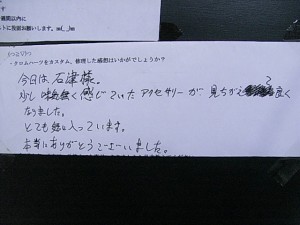 機関以内に
ストに投函お願いします。m(_ _)m
・クロムハーツをカスタム、修理した感想はいかがでしょうか？
今日は、石津様。
少し味気無く感じていたアクセサリーが、見ちがえ良く
なりました。
とても気に入っています。
本当にありがとうございました。